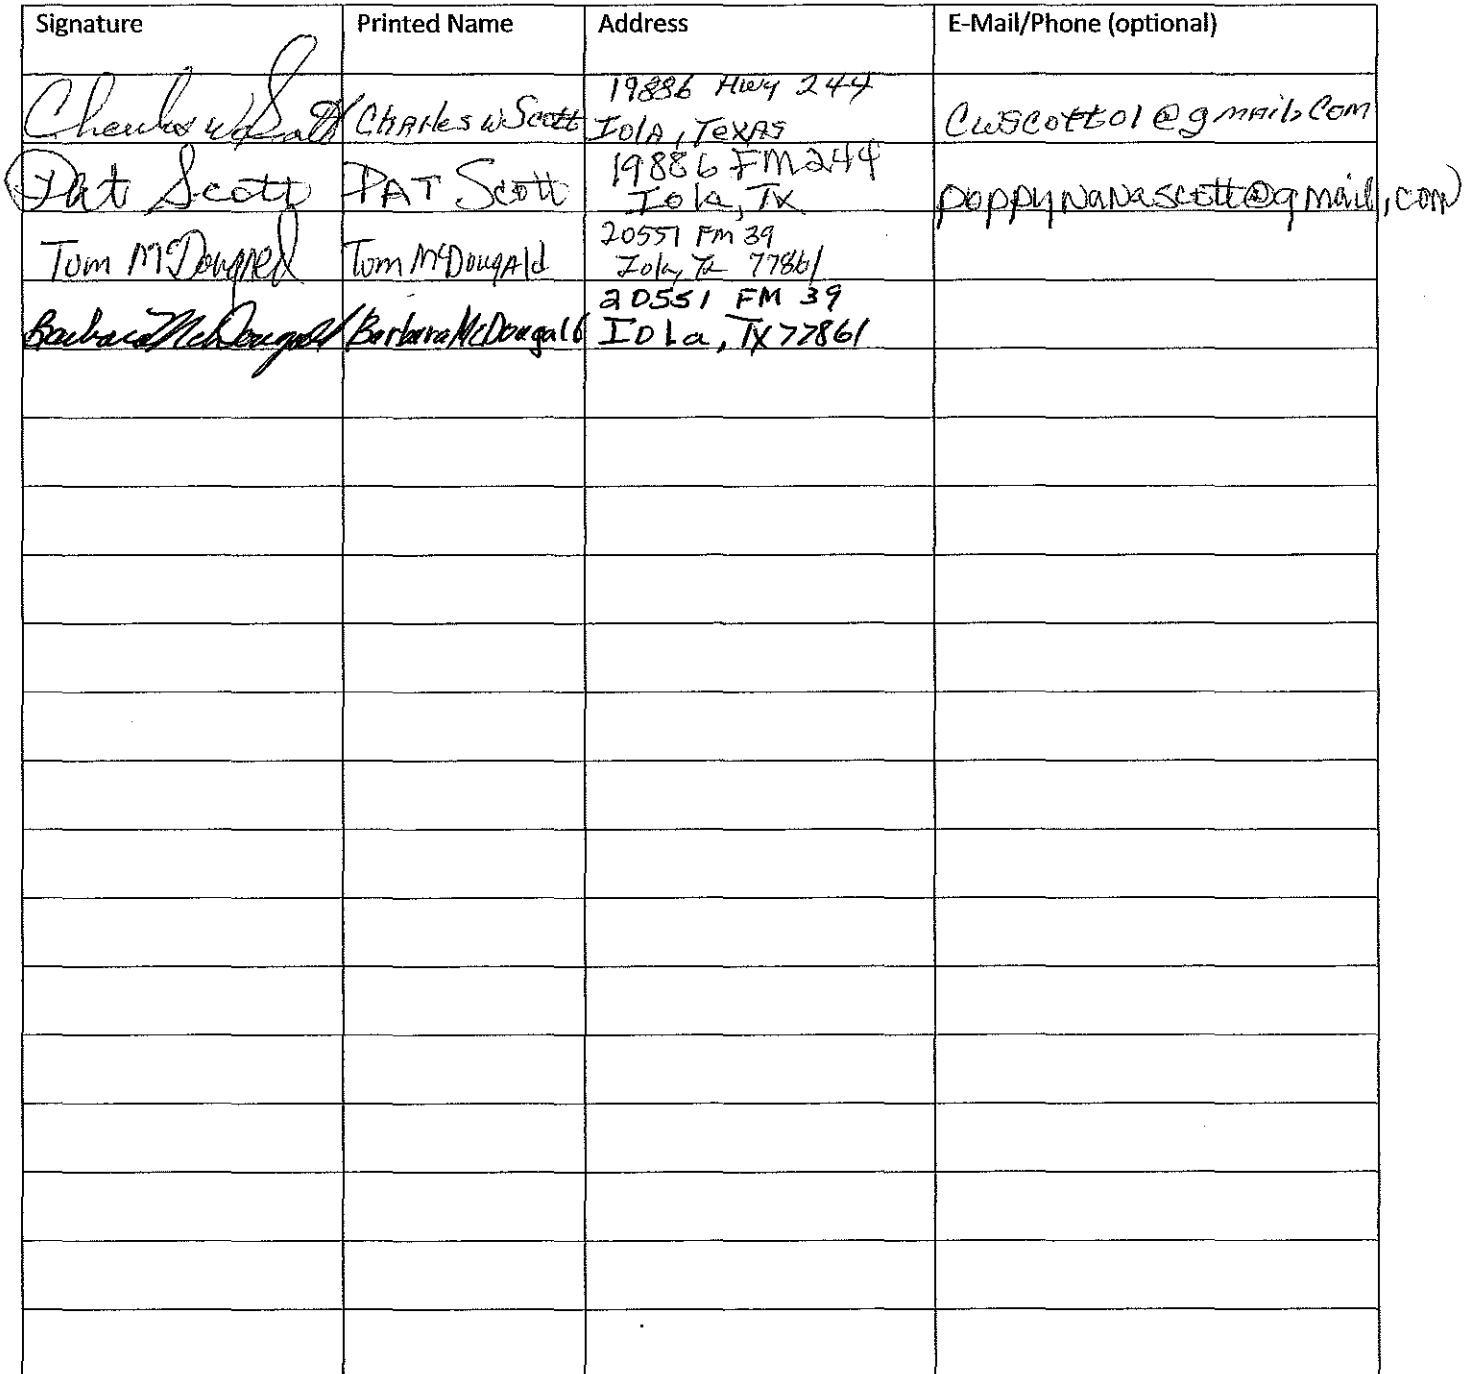 Signature Printed Name Address E-Mail/Phone (optional)
Charles W Scott CHARles W Scott 19886 Hwy 244
IolA, TexAs cwscott01@gmail.com
Pat Scott PAT Scott 19886 FM 244
Iola, TX poppynanascott@gmail.com
Tom McDougald Tom McDougAld 20551 FM 39
Iola, Tx 77861
Barbara McDougald Barbara McDougald 20551 FM 39
IOLa, TX 77861